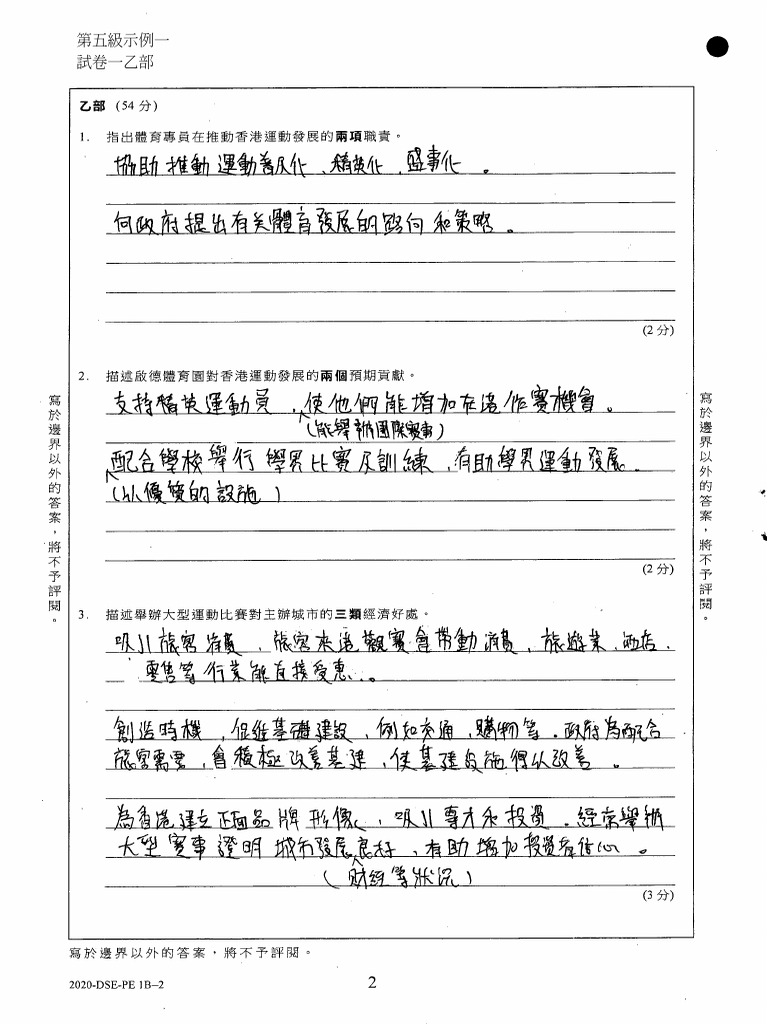 第五級示例一
試卷一乙部
乙部 (54 分)
1. 指出體育專員在推動香港運動發展的兩項職責。
協助推動運動普及化、精英化、盛事化 。
向政府提出有关體育發展的路向和策略。
(2 分)
2. 描述啟德體育園對香港運動發展的兩個預期貢獻。
支持精英運動員 ,使他們能增加在港作賽機會。
(能舉辦國際賽事)
配合學校舉行學界比賽及訓練,有助學界運動發展.
(以優質的設施)
(2 分)
3. 描述舉辦大型運動比賽對主辦城市的三類經濟好處。
吸引旅客消費,旅客來港觀賽會帶動消費,旅遊業、酒店、
零售等行業能直接受惠。
創造時機,促進基礎建設,例如交通,購物等。政府為配合
旅客需要,會積極改善基建,使基建設施得以改善 。
為香港建立正面品牌形像,吸引專才和投資。經常舉辦
大型賽事證明城市發展良好,有助增加投資者信心。
(財經等狀況)
(3 分)
寫於邊界以外的答案,將不予評閱。
寫於邊界以外的答案,將不予評閱。
寫於邊界以外的答案,將不予評閱。
2020-DSE-PE 1B–2
2